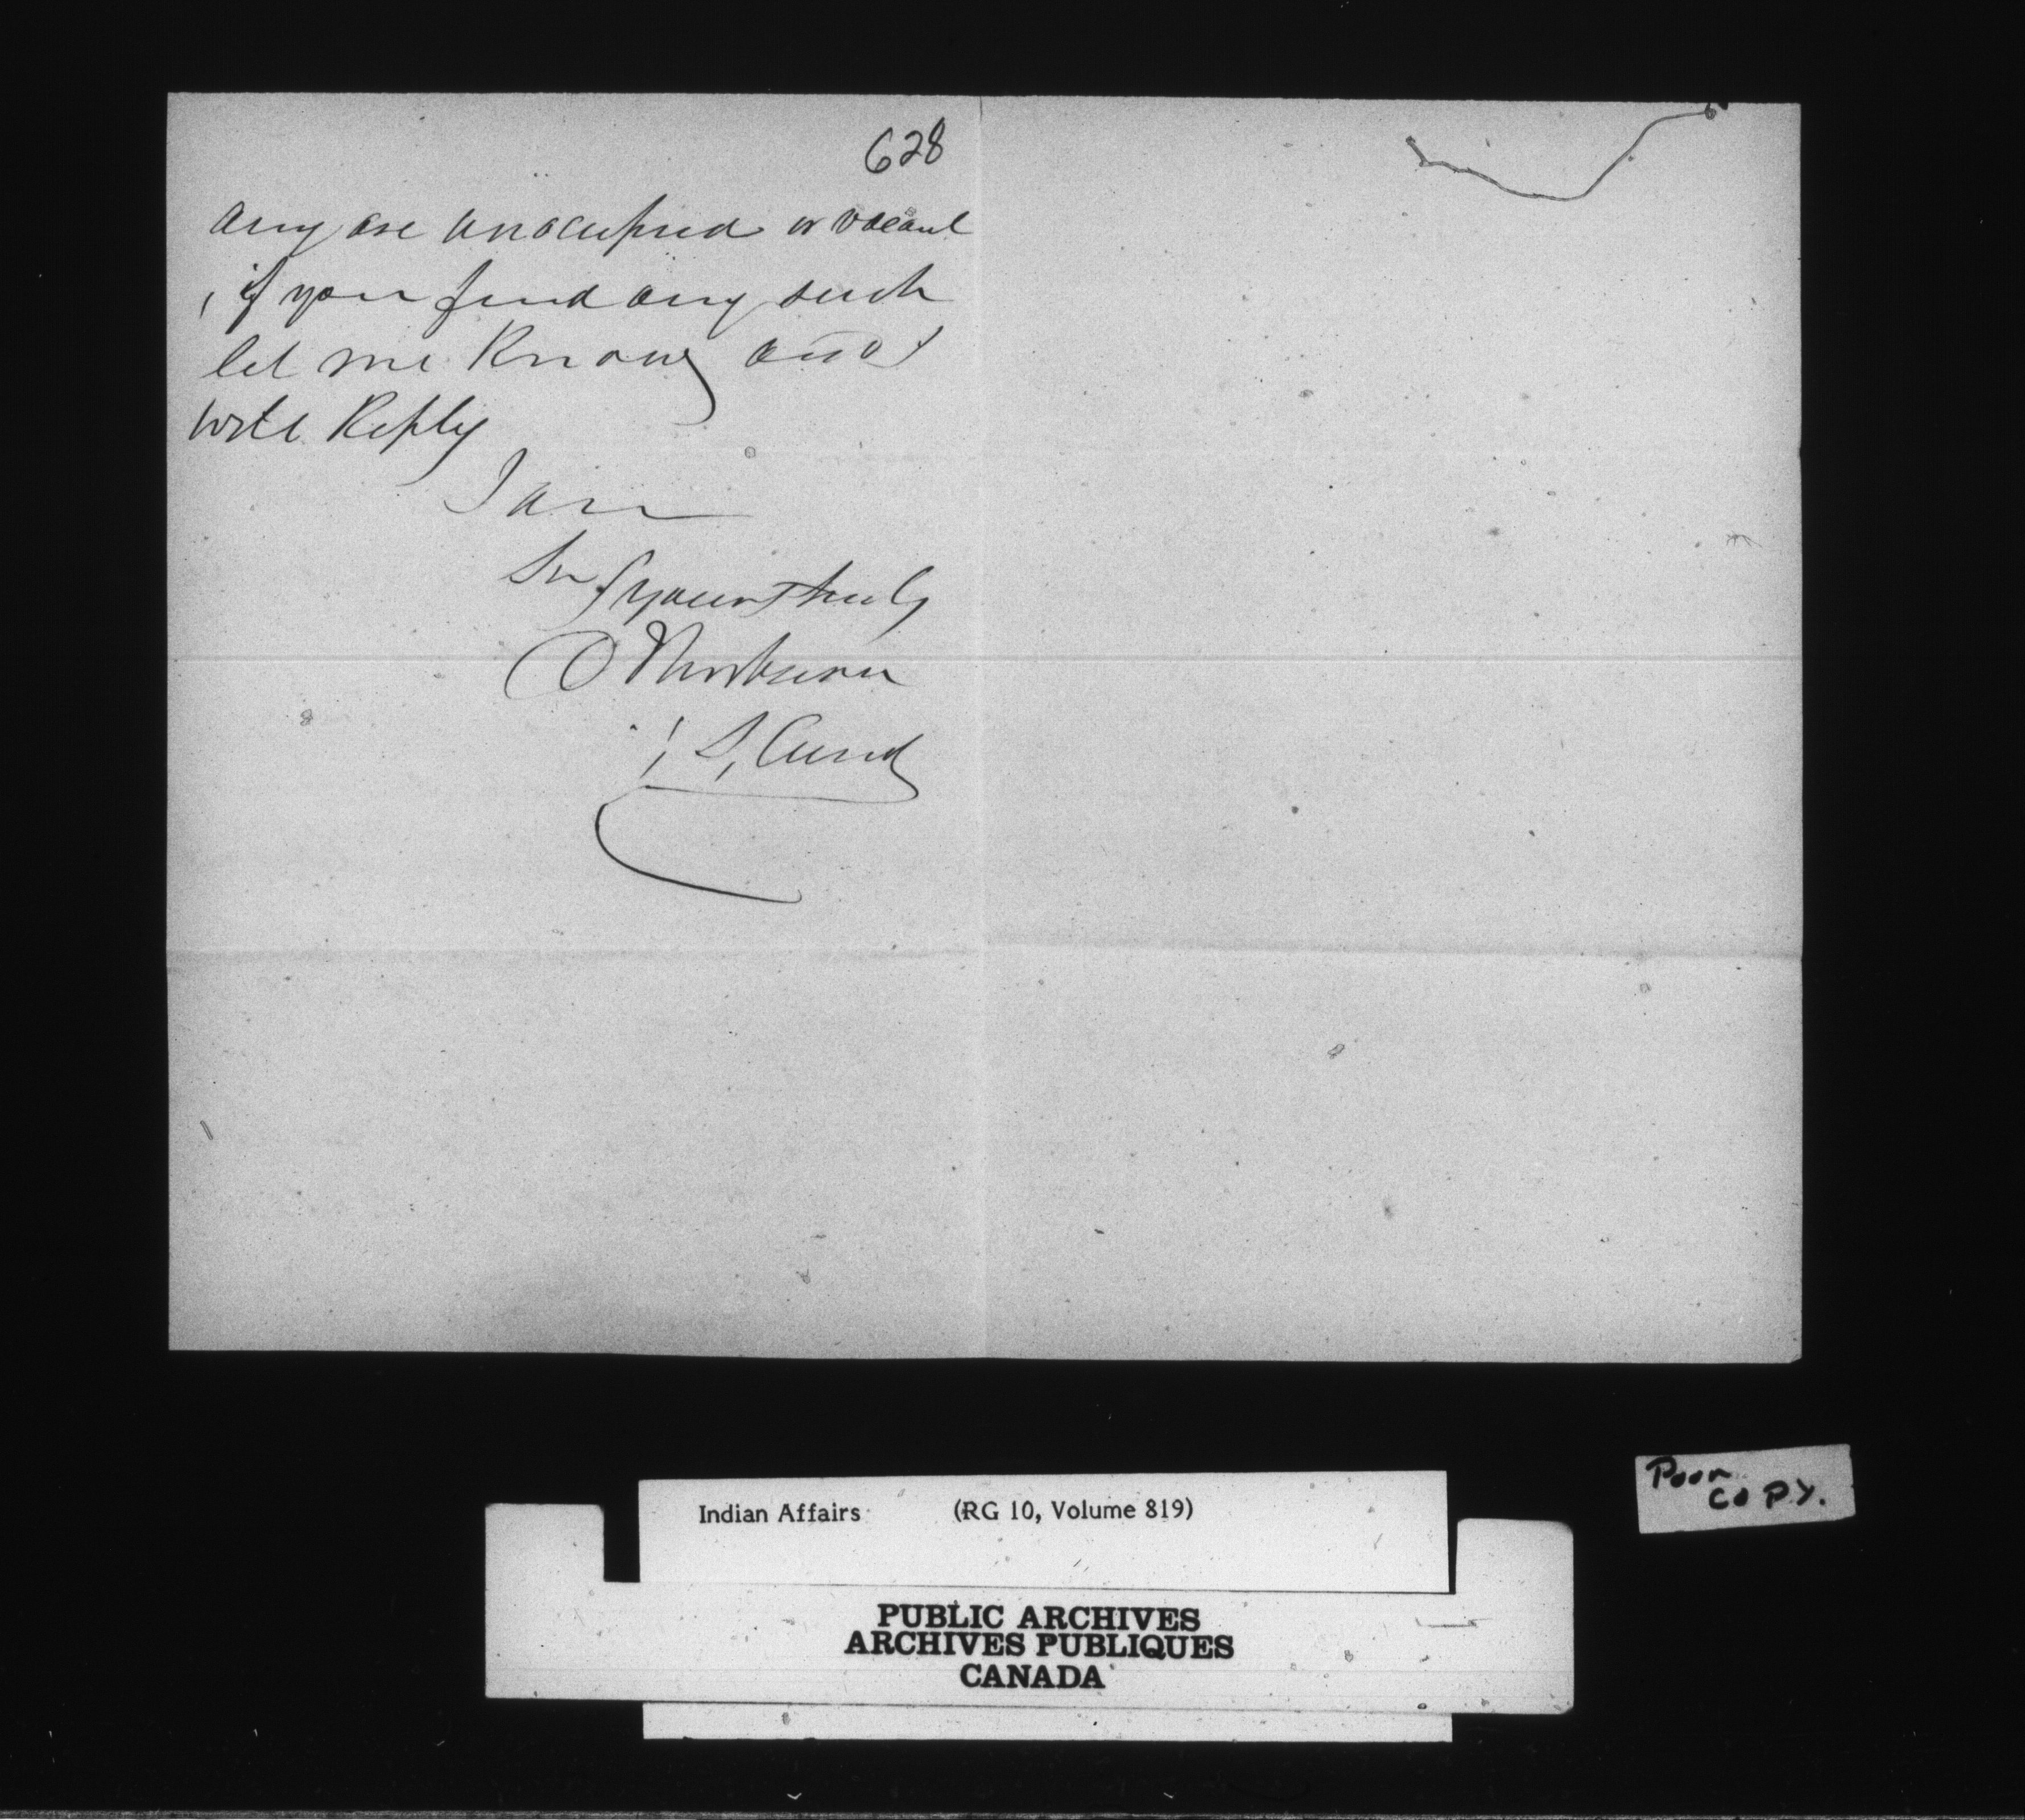 628
any are unoccupied or vacant
, if you find any such
let me know and I
will Reply
I am
Sir yours truly
Indian Affairs (RG 10, Volume 819)
PUBLIC ARCHIVES
ARCHIVES PUBLIQUES
CANADA
Poor
COPY.